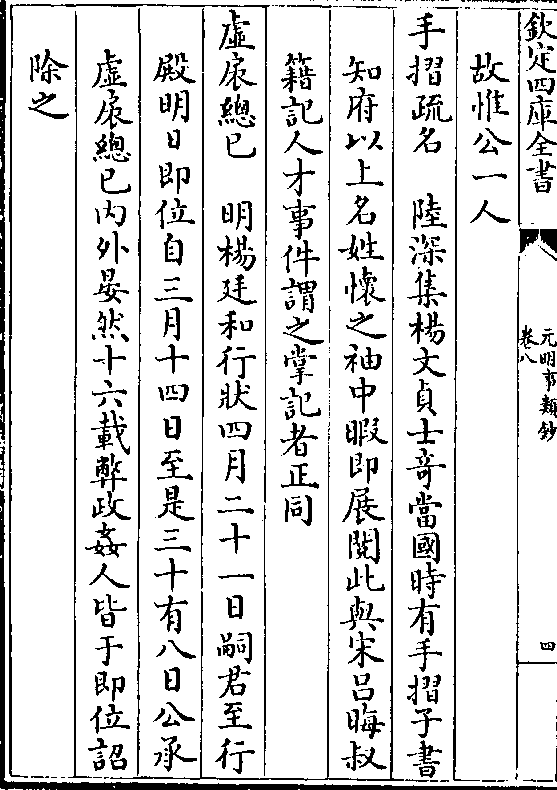 欽定四庫全書
元明事類鈔
卷八
四
故惟公一人
手摺疏名　陸深集楊文貞士奇當國時有手摺子書
知府以上名姓懷之袖中暇即展閱此與宋呂晦叔
籍記人才事件謂之掌記者正同
虛扆總已　明楊廷和行狀四月二十一日嗣君至行
殿明日即位自三月十四日至是三十有八日公承
虛扆總已內外晏然十六載弊政姦人皆于即位詔
除之